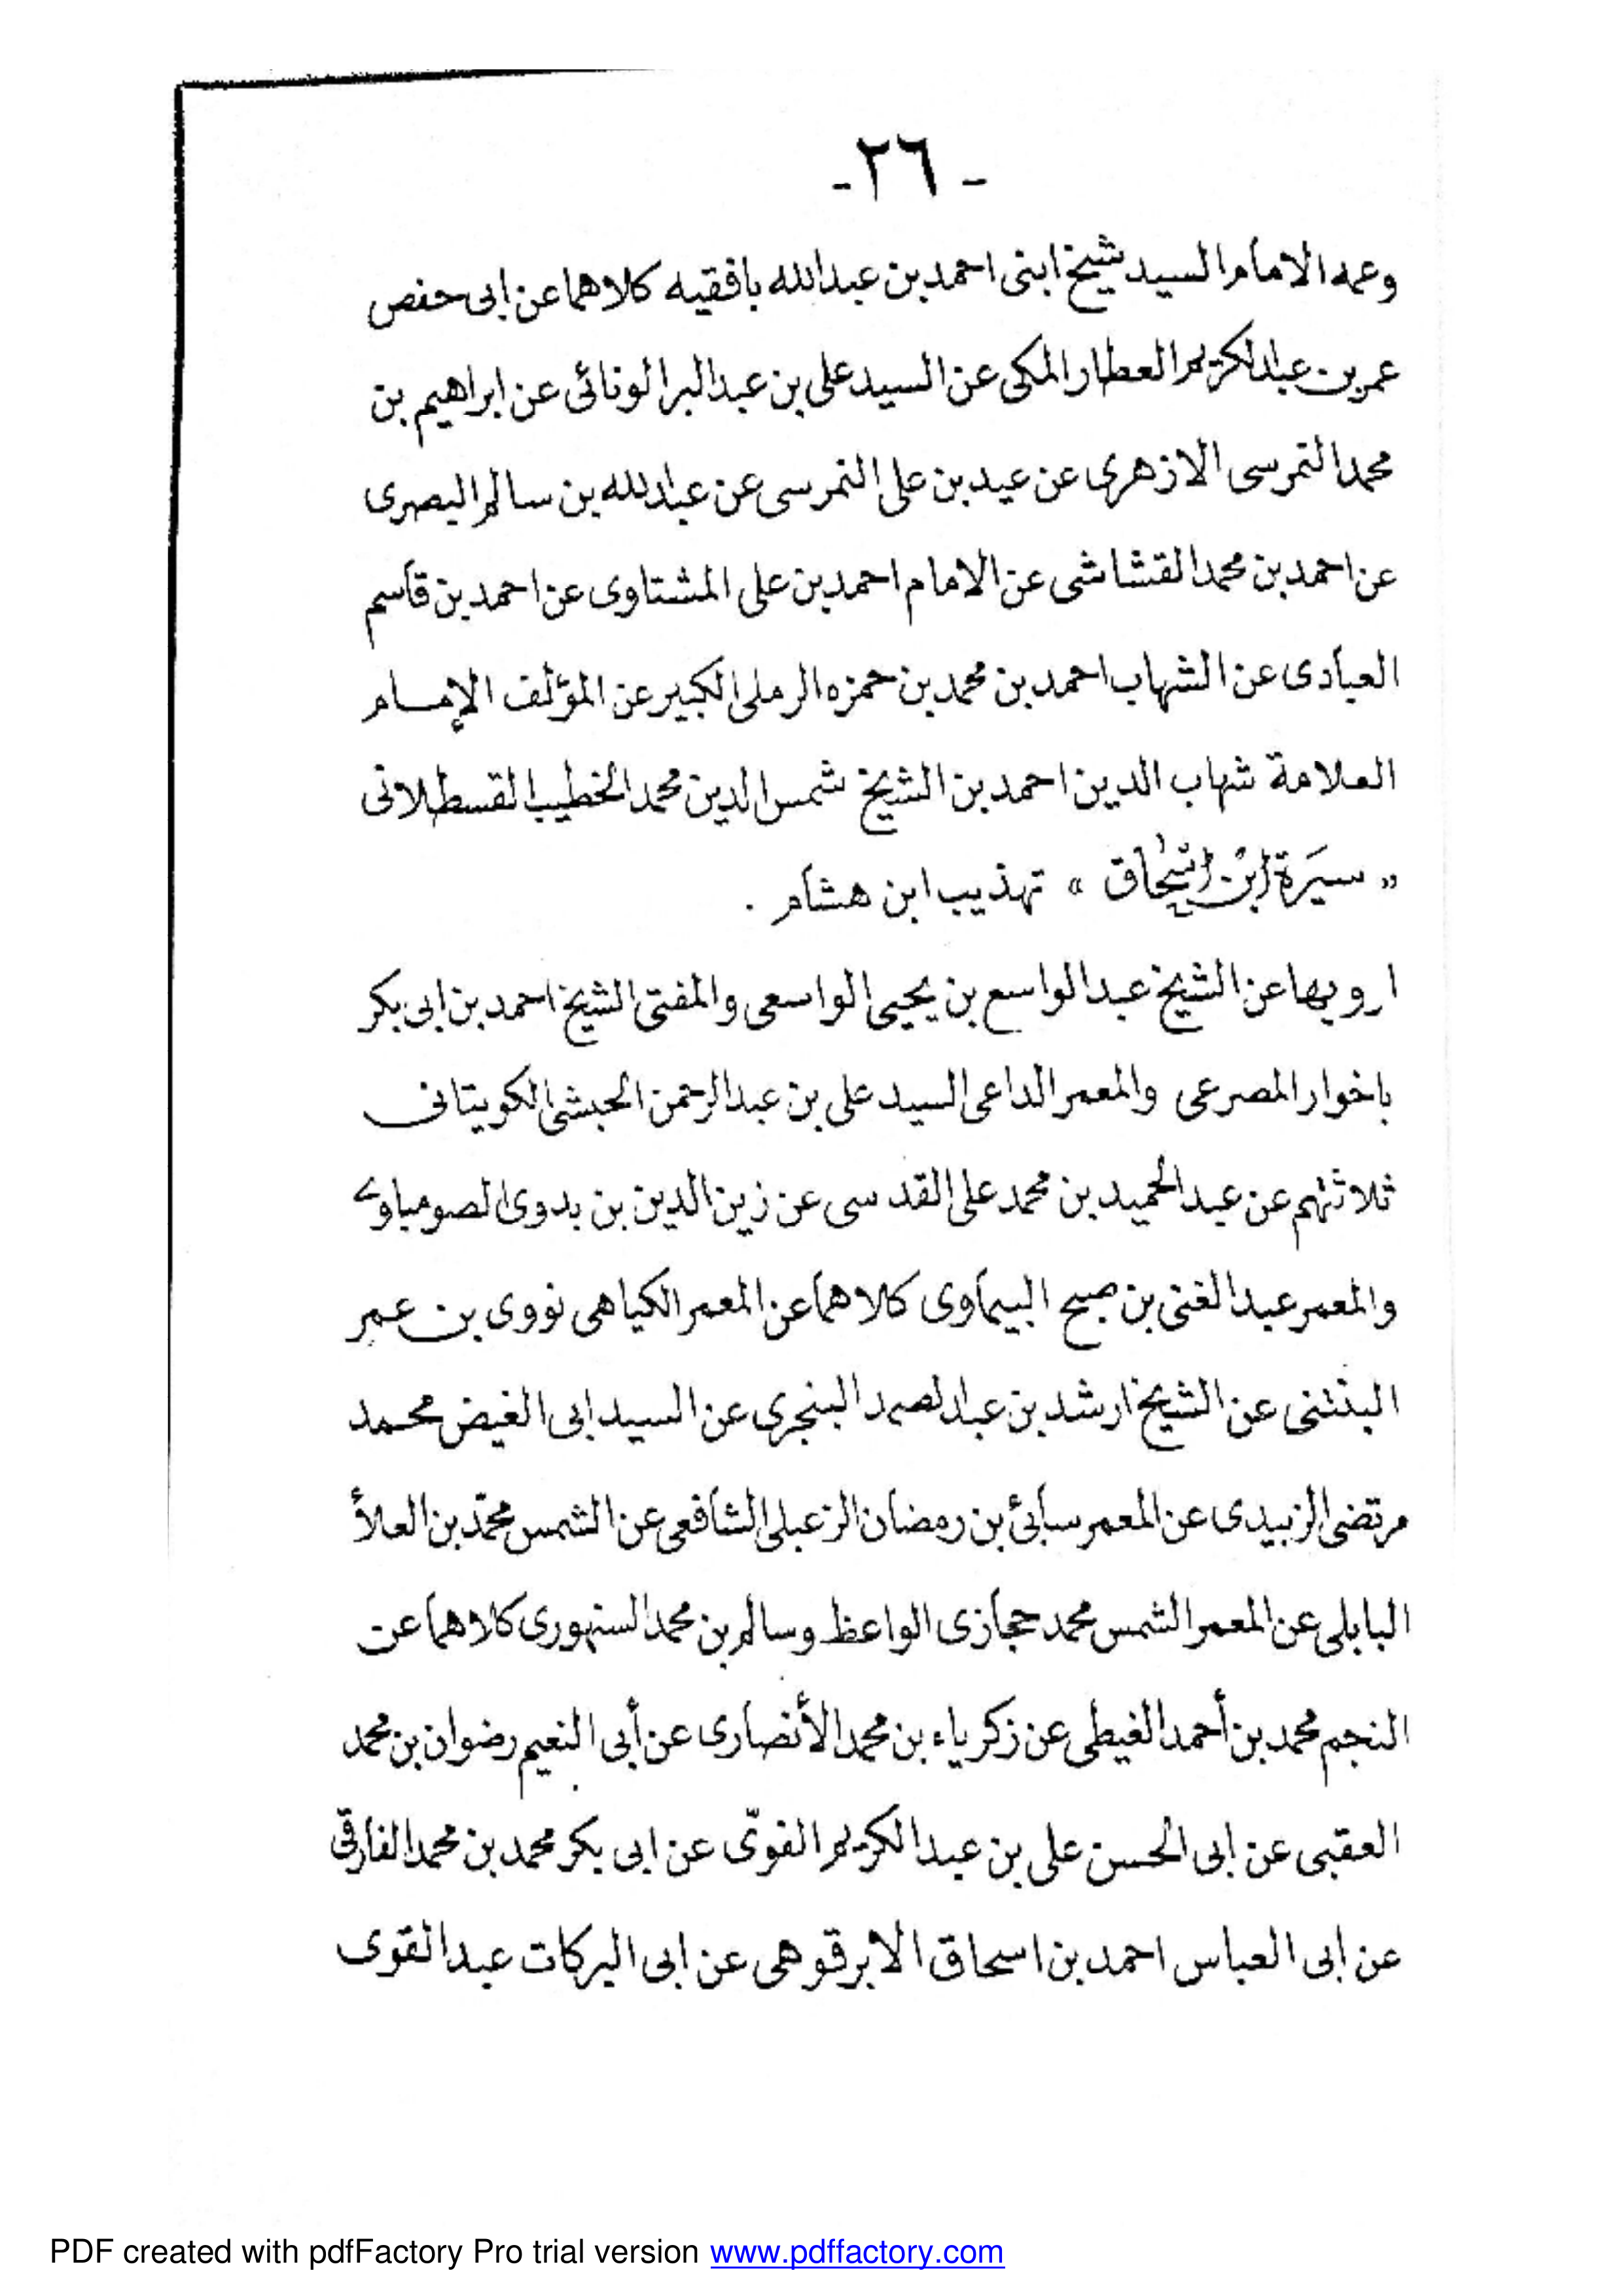 - ٢٦ -
وعمه الامام السيد شيخ ابنى احمد بن عبدالله بافقيه كلاهما عن ابى حفص
عمر بن عبدالكريم العطار المكى عن السيد على بن عبدالبر الونائى عن ابراهيم بن
محمد النمرسى الازهرى عن عيد بن على النمرسى عن عبدالله بن سالم البصرى
عن احمد بن محمد القشاشى عن الامام احمد بن على المشتاوى عن احمد بن قاسم
العبادى عن الشهاب احمد بن محمد بن حمزه الرملى الكبير عن المؤلف الإمام
العلامة شهاب الدين احمد بن الشيخ شمس الدين محمد الخطيب القسطلانى
« سيَرة ابن إسحاق » تهذيب ابن هشام .
ارويها عن الشيخ عبدالواسع بن يحيى الواسعى والمفتى الشيخ احمد بن ابى بكر
باخوار المصرعى والمعمر الداعى السيد على بن عبدالرحمن الحبشى الكويتانى
ثلاثتهم عن عبدالحميد بن محمد على القدسى عن زين الدين بن بدوى الصومباوى
والمعمر عبدالغنى بن صبح البيماوى كلاهما عن المعمر الكياهى نووى بن عمر
البنتنى عن الشيخ ارشد بن عبدالصمد البنجرى عن السيد ابى الفيض محمد
مرتضى الزبيدى عن المعمر سبائ بن رمضان الزعبلى الشافعى عن الشمس محمّد بن العلأ
البابلى عن المعمر الشمس محمد حجازى الواعظ وسالم بن محمد السنهورى كلاهما عن
النجم محمد بن أحمد الغيطى عن زكرياء بن محمد الأنصارى عن أبى النعيم رضوان بن محمد
العقبى عن ابى الحسن على بن عبدالكريم الفوّى عن ابى بكر محمد بن محمد الفارقى
عن ابى العباس احمد بن اسحاق الابرقوهى عن ابى البركات عبدالقوى
PDF created with pdfFactory Pro trial version www.pdffactory.com